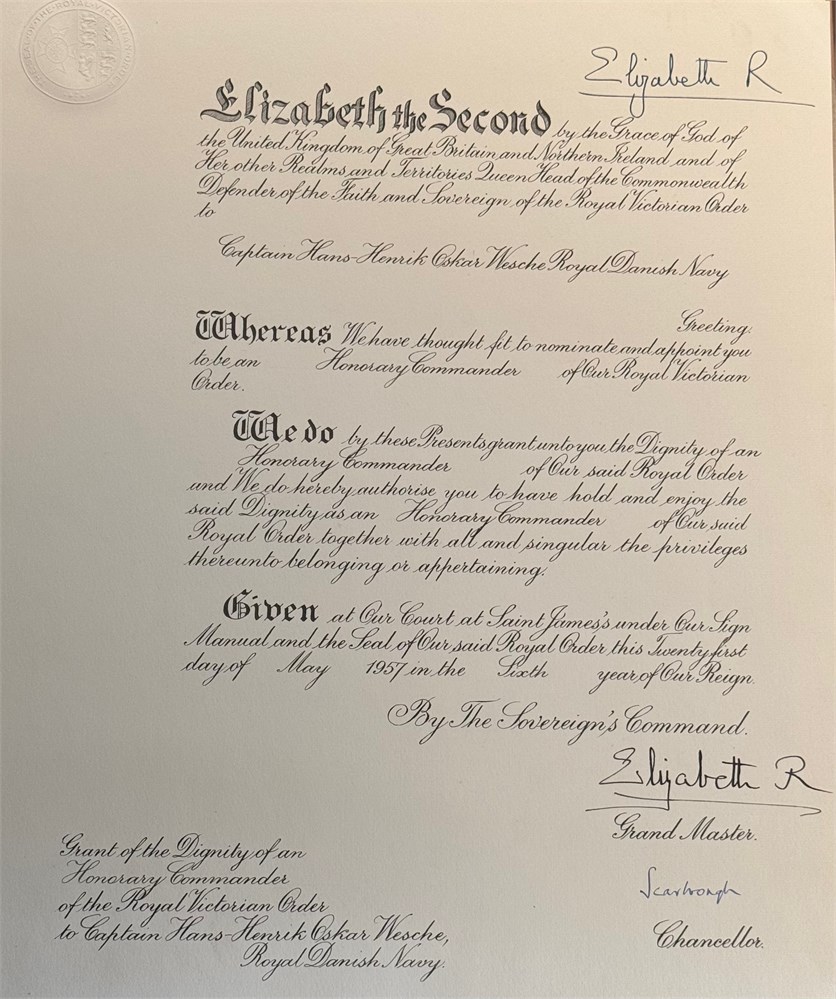 Elizabeth R
Elizabeth the Second by the Grace of God of
the United Kingdom of Great Britain and Northern Ireland and of
Her other Realms and Territories Queen Head of the Commonwealth
Defender of the Faith and Sovereign of the Royal Victorian Order
to
Captain Hans-Henrik Oskar Wesche Royal Danish Navy
Greeting.
Whereas We have thought fit to nominate and appoint you
to be an Honorary Commander of Our Royal Victorian
Order.
We do by these Presents grant unto you the Dignity of an
Honorary Commander of Our said Royal Order
and We do hereby authorise you to have hold and enjoy the
said Dignity as an Honorary Commander of Our said
Royal Order together with all and singular the privileges
thereunto belonging or appertaining.
Given at Our Court at Saint James's under Our Sign
Manual and the Seal of Our said Royal Order this Twenty first
day of May 1957 in the Sixth year of Our Reign.
By The Sovereign's Command.
Elizabeth R
Grand Master.
Scarbrough
Chancellor.
Grant of the Dignity of an
Honorary Commander
of the Royal Victorian Order
to Captain Hans-Henrik Oskar Wesche,
Royal Danish Navy.